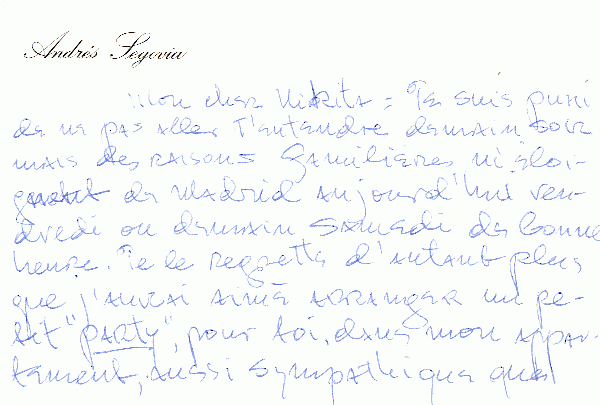 Andrés Segovia
Mon cher Nikita = Je suis puni
de ne pas aller t'entendre demain soir
mais des raisons familières m'éloi-
gnent de Madrid aujourd'hui ven-
dredi ou demain samedi de bonne
heure. Je le regrette d'autant plus
que j'aurai aimé arranger un pe-
tit "party", pour toi, dans mon appar-
tement, aussi sympathique que